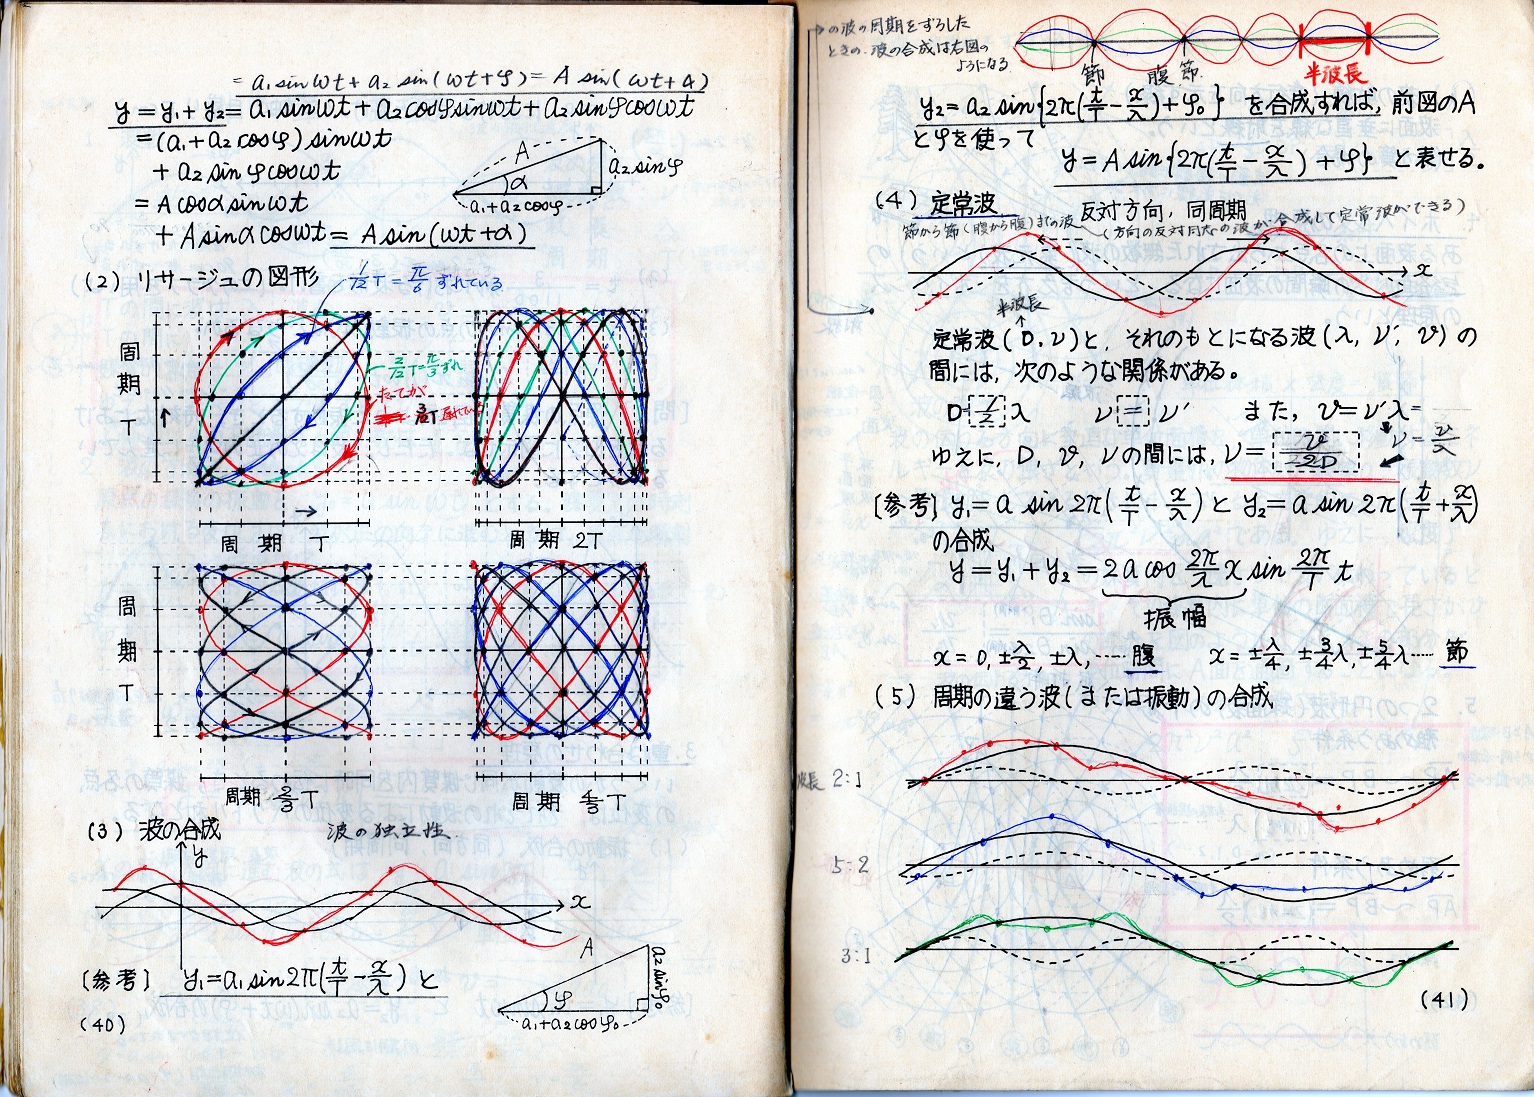 = a₁ sin ωt + a₂ sin(ωt+φ) = A sin(ωt+α)
y = y₁ + y₂ = a₁ sin ωt + a₂ cos φ sin ωt + a₂ sin φ cos ωt
= (a₁ + a₂ cos φ) sin ωt
+ a₂ sin φ cos ωt
= A cos α sin ωt
+ A sin α cos ωt = A sin(ωt+α)
A
α
a₂ sin φ
a₁+a₂cosφ
(2) リサージュの図形
1/12 T = π/6 ずれている
周期 T
2/12 T = π/3 ずれ
たてが
3/12 T 遅れてい
周期 T
周期 2T
周期 T
周期 2/3 T
周期 4/3 T
(3) 波の合成
波の独立性.
y
x
[参考] y₁ = a₁ sin 2π(t/T − x/λ) と
A
φ
a₂ sin φ₀
a₁+a₂cosφ₀
(40)
の波の周期をずらした
ときの. 波の合成は右図の
ようになる
節
腹
節.
半波長
y₂ = a₂ sin{2π(t/T − x/λ) + φ₀} を合成すれば, 前図のA
とφを使って
y = A sin{2π(t/T − x/λ) + φ} と表せる。
(4) 定常波
反対方向, 同周期
節から節(腹から腹)までの波
(方向の反対同大の波が合成して定常波ができる)
x
半波長
定常波(D, ν)と, それのもとになる波(λ, ν', v)の
間には, 次のような関係がある。
D = 1/2 λ ν = ν' また, v = ν'λ =
ν = v/λ
ゆえに, D, v, νの間には, ν = v/2D
[参考] y₁ = a sin 2π(t/T − x/λ) と y₂ = a sin 2π(t/T + x/λ)
の合成
y = y₁ + y₂ = 2a cos 2π/λ x sin 2π/T t
振幅
x = 0, ±λ/2, ±λ, …… 腹 x = ±λ/4, ±3/4λ, ±5/4λ …… 節
(5) 周期の違う波(または振動)の合成
波長 2:1
5:2
3:1
(41)